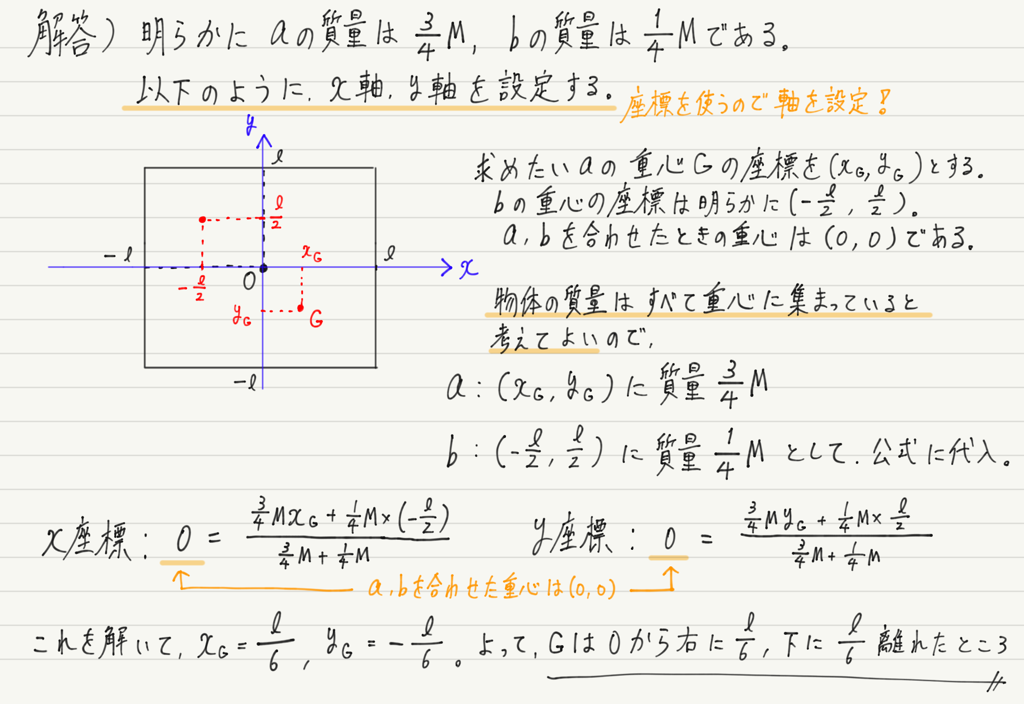 解答) 明らかに aの質量は 3/4 M, bの質量は 1/4 Mである。
以下のように、x軸、y軸を設定する。
座標を使うので軸を設定!
y
l
l/2
-l
xG
l
x
-l/2
O
yG
G
-l
求めたいaの重心Gの座標を(xG, yG)とする。
bの重心の座標は明らかに(-l/2, l/2)。
a, bを合わせたときの重心は(0, 0)である。
物体の質量はすべて重心に集まっていると
考えてよいので、
a : (xG, yG)に質量 3/4 M
b : (-l/2, l/2)に質量 1/4 Mとして、公式に代入。
x座標 : 0 = (3/4 MxG + 1/4 M×(-l/2)) / (3/4 M + 1/4 M)
y座標 : 0 = (3/4 MyG + 1/4 M× l/2) / (3/4 M + 1/4 M)
a, bを合わせた重心は(0, 0)
これを解いて、xG = l/6, yG = -l/6。よって、GはOから右に l/6, 下に l/6 離れたところ